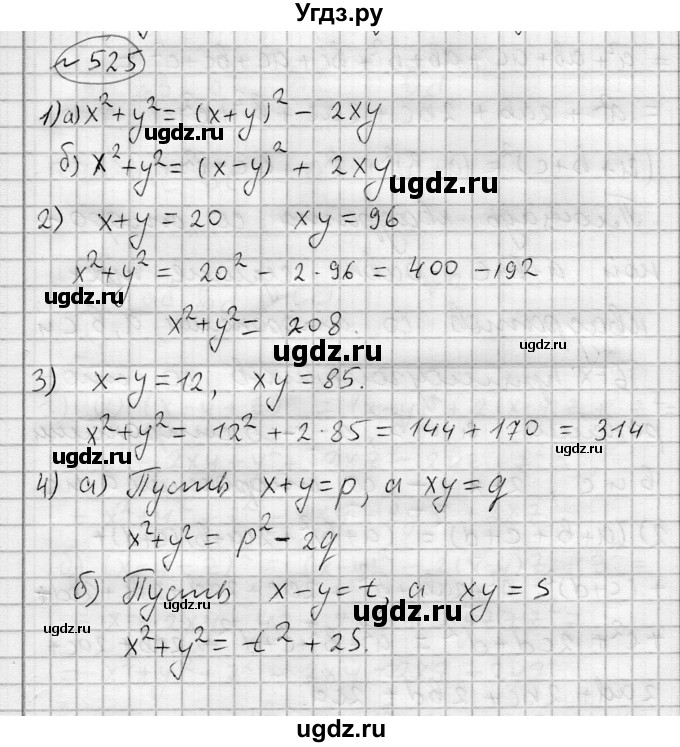 Угдз.ру
№ 525
1) а) x² + y² = (x+y)² − 2xy
ugdz.ru
б) x² + y² = (x−y)² + 2xy
ugdz.ru
2) x+y = 20 xy = 96
x² + y² = 20² − 2·96 = 400 − 192
ugdz.ru
x² + y² = 208.
ugdz.ru
ugdz.ru
3) x−y = 12, xy = 85.
x² + y² = 12² + 2·85 = 144 + 170 = 314
ugdz.ru
ugdz.ru
4) а) Пусть x+y = p, а xy = q
x² + y² = p² − 2q
б) Пусть x−y = t, а xy = s
ugdz.ru
ugdz.ru
ugdz.ru
x² + y² = t² + 2s.
ugdz.ru